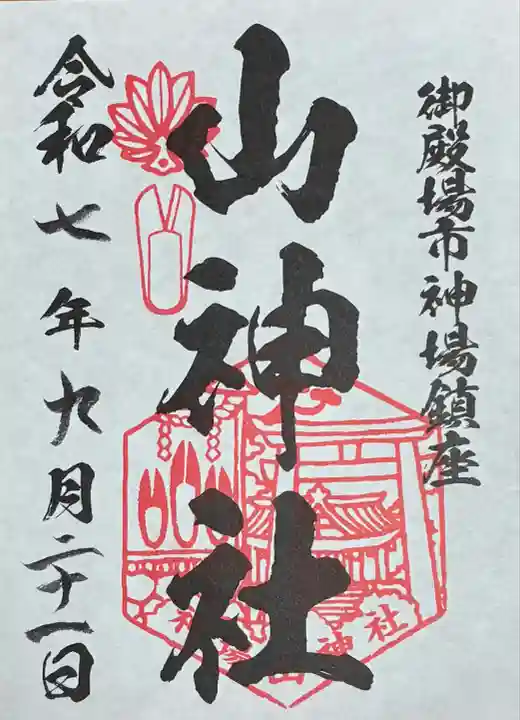 御殿場市神場鎮座
山神社
令和七年九月二十一日
神場山神社